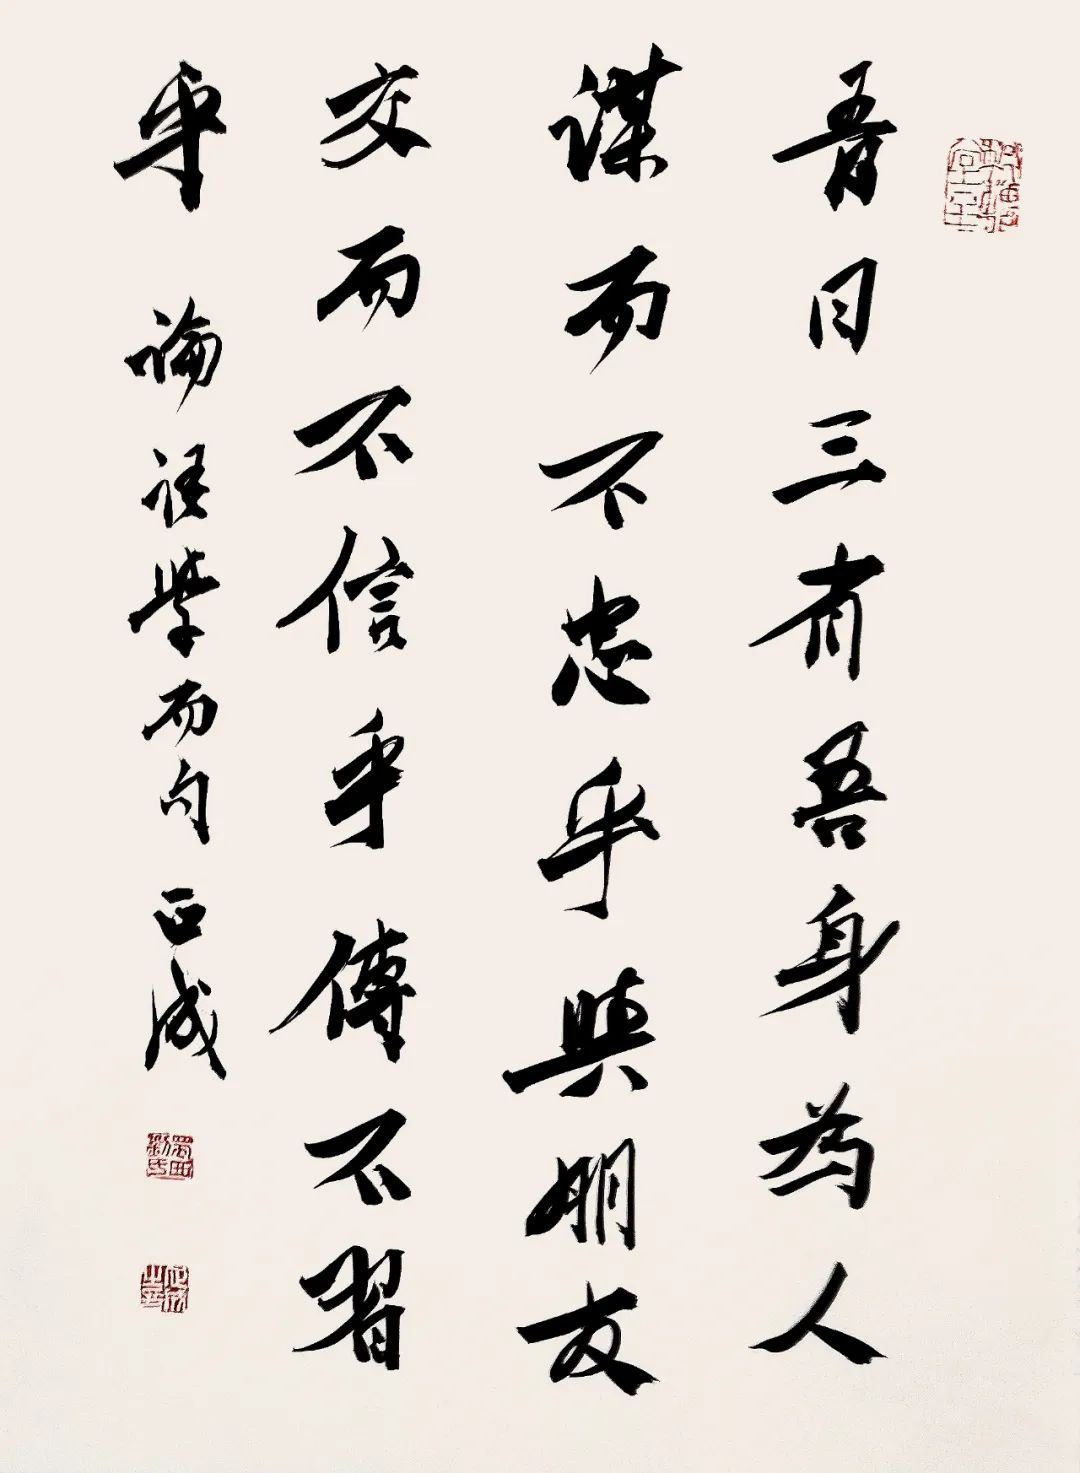 吾日三省吾身為人
謀而不忠乎與朋友
交而不信乎傳不習
乎 論語學而句 正成
蜀西劉氏